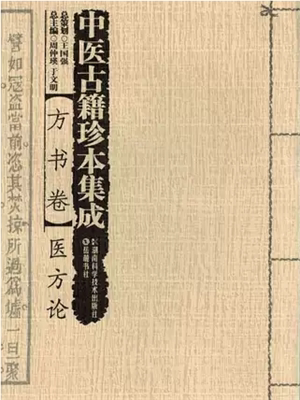 中医古籍珍本集成
总策划◇王国强
总主编◇周仲瑛 于文明
【方书卷】
医方论
湖南科学技术出版社
岳麓书社
譬如寇盗當前恣其焚掠所過為墟一日聚